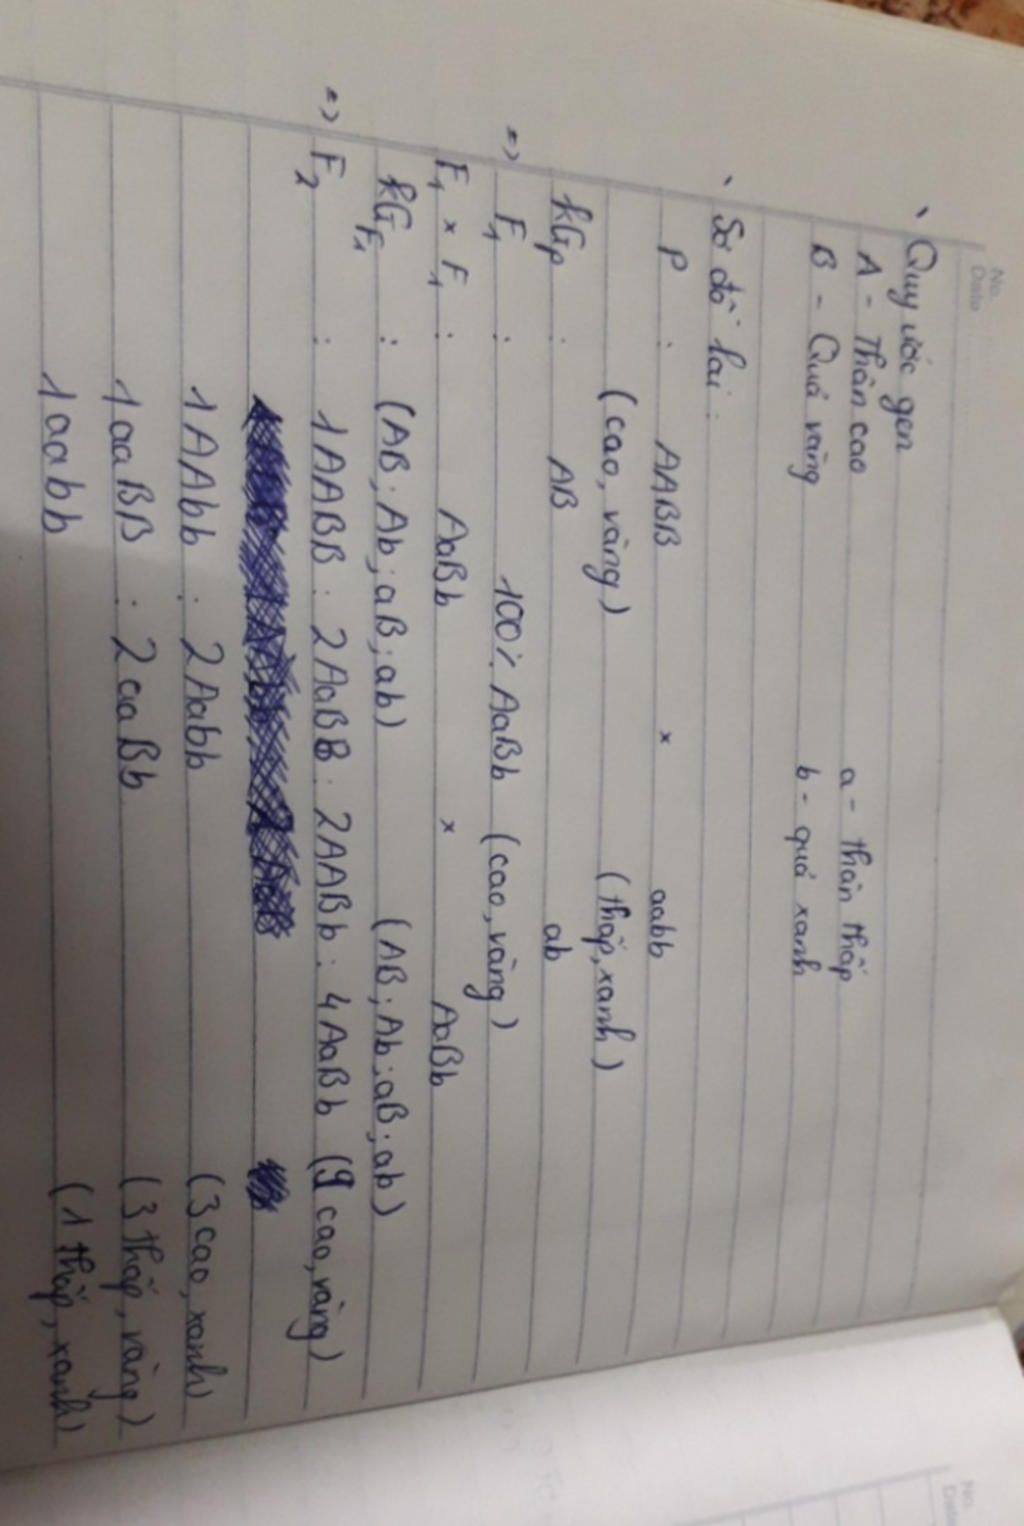 No.
Date
Quy ước gen
A - Thân cao a - thân thấp
B - Quả vàng b - quả xanh
Sơ đồ lai :
P : AABB × aabb
(cao, vàng) (thấp, xanh)
KGp : AB ab
=> F1 : 100% AaBb (cao, vàng)
F1 × F1 : AaBb × AaBb
KGF1 : (AB; Ab; aB; ab) (AB; Ab; aB; ab)
=> F2 : 1AABB : 2AaBB : 2AABb : 4AaBb (9 cao, vàng)
1AAbb : 2Aabb (3 cao, xanh)
1aaBB : 2aaBb (3 thấp, vàng)
1aabb (1 thấp, xanh)
No.
Date